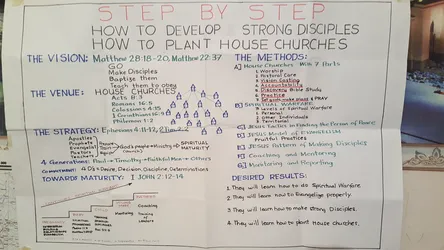 STEP BY STEP
HOW TO DEVELOP STRONG DISCIPLES
HOW TO PLANT HOUSE CHURCHES
THE VISION: Matthew 28:18-20, Matthew 22:37
GO
Make Disciples
Baptize them
Teach them to obey
THE VENUE: HOUSE CHURCHES
Acts 8:3
Romans 16:5
Colossians 4:15
I Corinthians 16:
Philemon 1:2
THE STRATEGY: Ephesians 4:11-12,
Apostles
Prophets
Evangelist
Pastors
Teachers
God's people
Ministry
SPIRITUAL
MATURITY
4 Generations: Paul - Timothy - Faithful Men - Others
Commitment: 4 D's = Desire, Decision, Discipline, Determinations
TOWARDS MATURITY: I JOHN 2:12-14
Coaching
THE METHODS:
A] House Churches With 7 Parts
1. Worship
2. Pastoral Care
3. Vision Casting
4. Accountability
5. Discovery Bible Study
6. Practice
7. Set goals PRAY
B] SPIRITUAL WARFARE
Levels of Spiritual Warfare
1. Personal
2. Other Individuals
3. Territorial
C] Jesus Tactics in Finding the Person of Peace
D] JESUS MODEL of EVANGELISM
Fruitful Practices
E] JESUS Pattern of Making Disciples
F] Coaching and Mentoring
G] Monitoring and Reporting
DESIRED RESULTS:
1. They will learn how to do Spiritual Warfare.
2. They will learn how to Evangelize properly
3. They will learn how to make strong Disciples.
4. They will learn how to plant House Church.